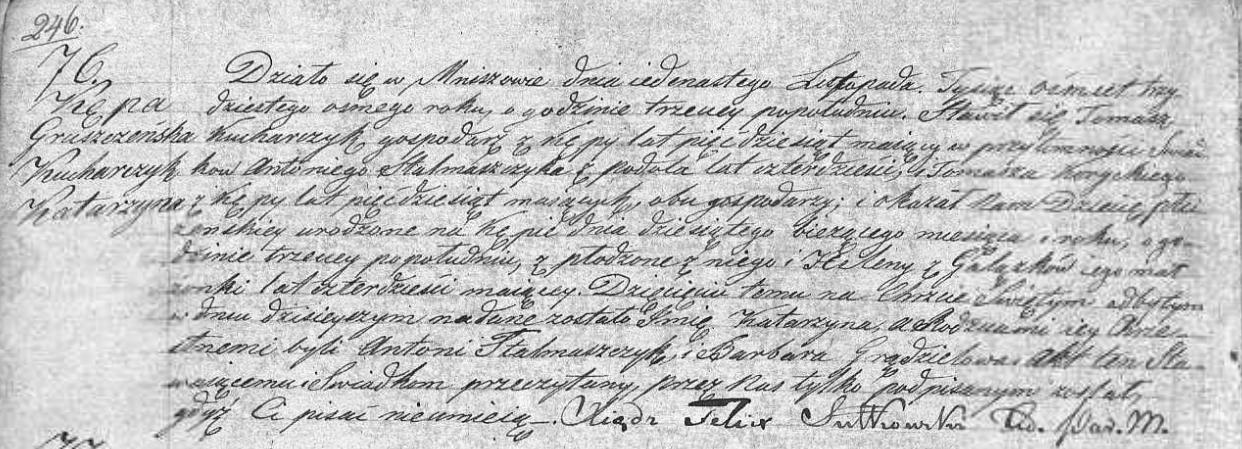 246.
76.
Kępa
Gruszczeńska
Kucharczyk
Katarzyna
Działo się w Mniszewie dnia iedenastego Listopada Tysiąc ośmset trzy
dziestego osmego roku, o godzinie trzeciey popołudniu. Stawił się Tomasz
Kucharczyk gospodarz z Kępy lat pięćdziesiąt maiący w przytomności Świad
ków Antoniego Stalmaszczyka z podola lat czterdzieści, i Tomasza
z Kępy lat pięćdziesiąt maiących, obu gospodarzy; i okazał nam Dziecię płci
żeńskiey urodzone na Kępie dnia dziesiątego bieżącego miesiąca i roku, o go-
dzinie trzeciey popołudniu, z płodzone z niego i Heleny z Gałązków iego mał
żonki lat czterdzieści maiącey. Dziecięciu temu na Chrzcie Świętym odbytym
w dniu dzisieyszym nadane zostało Imię Katarzyna, a Rodzicami iey Chrze-
stnemi byli Antoni Stalmaszczyk i Barbara Grądzielowa. akt ten Sta-
waiącemu i Świadkom przeczytany, przez Nas tylko podpisanym został,
gdyż Ci pisać nieumieią. Xiądz Felix Sutkowski Par. M.
77